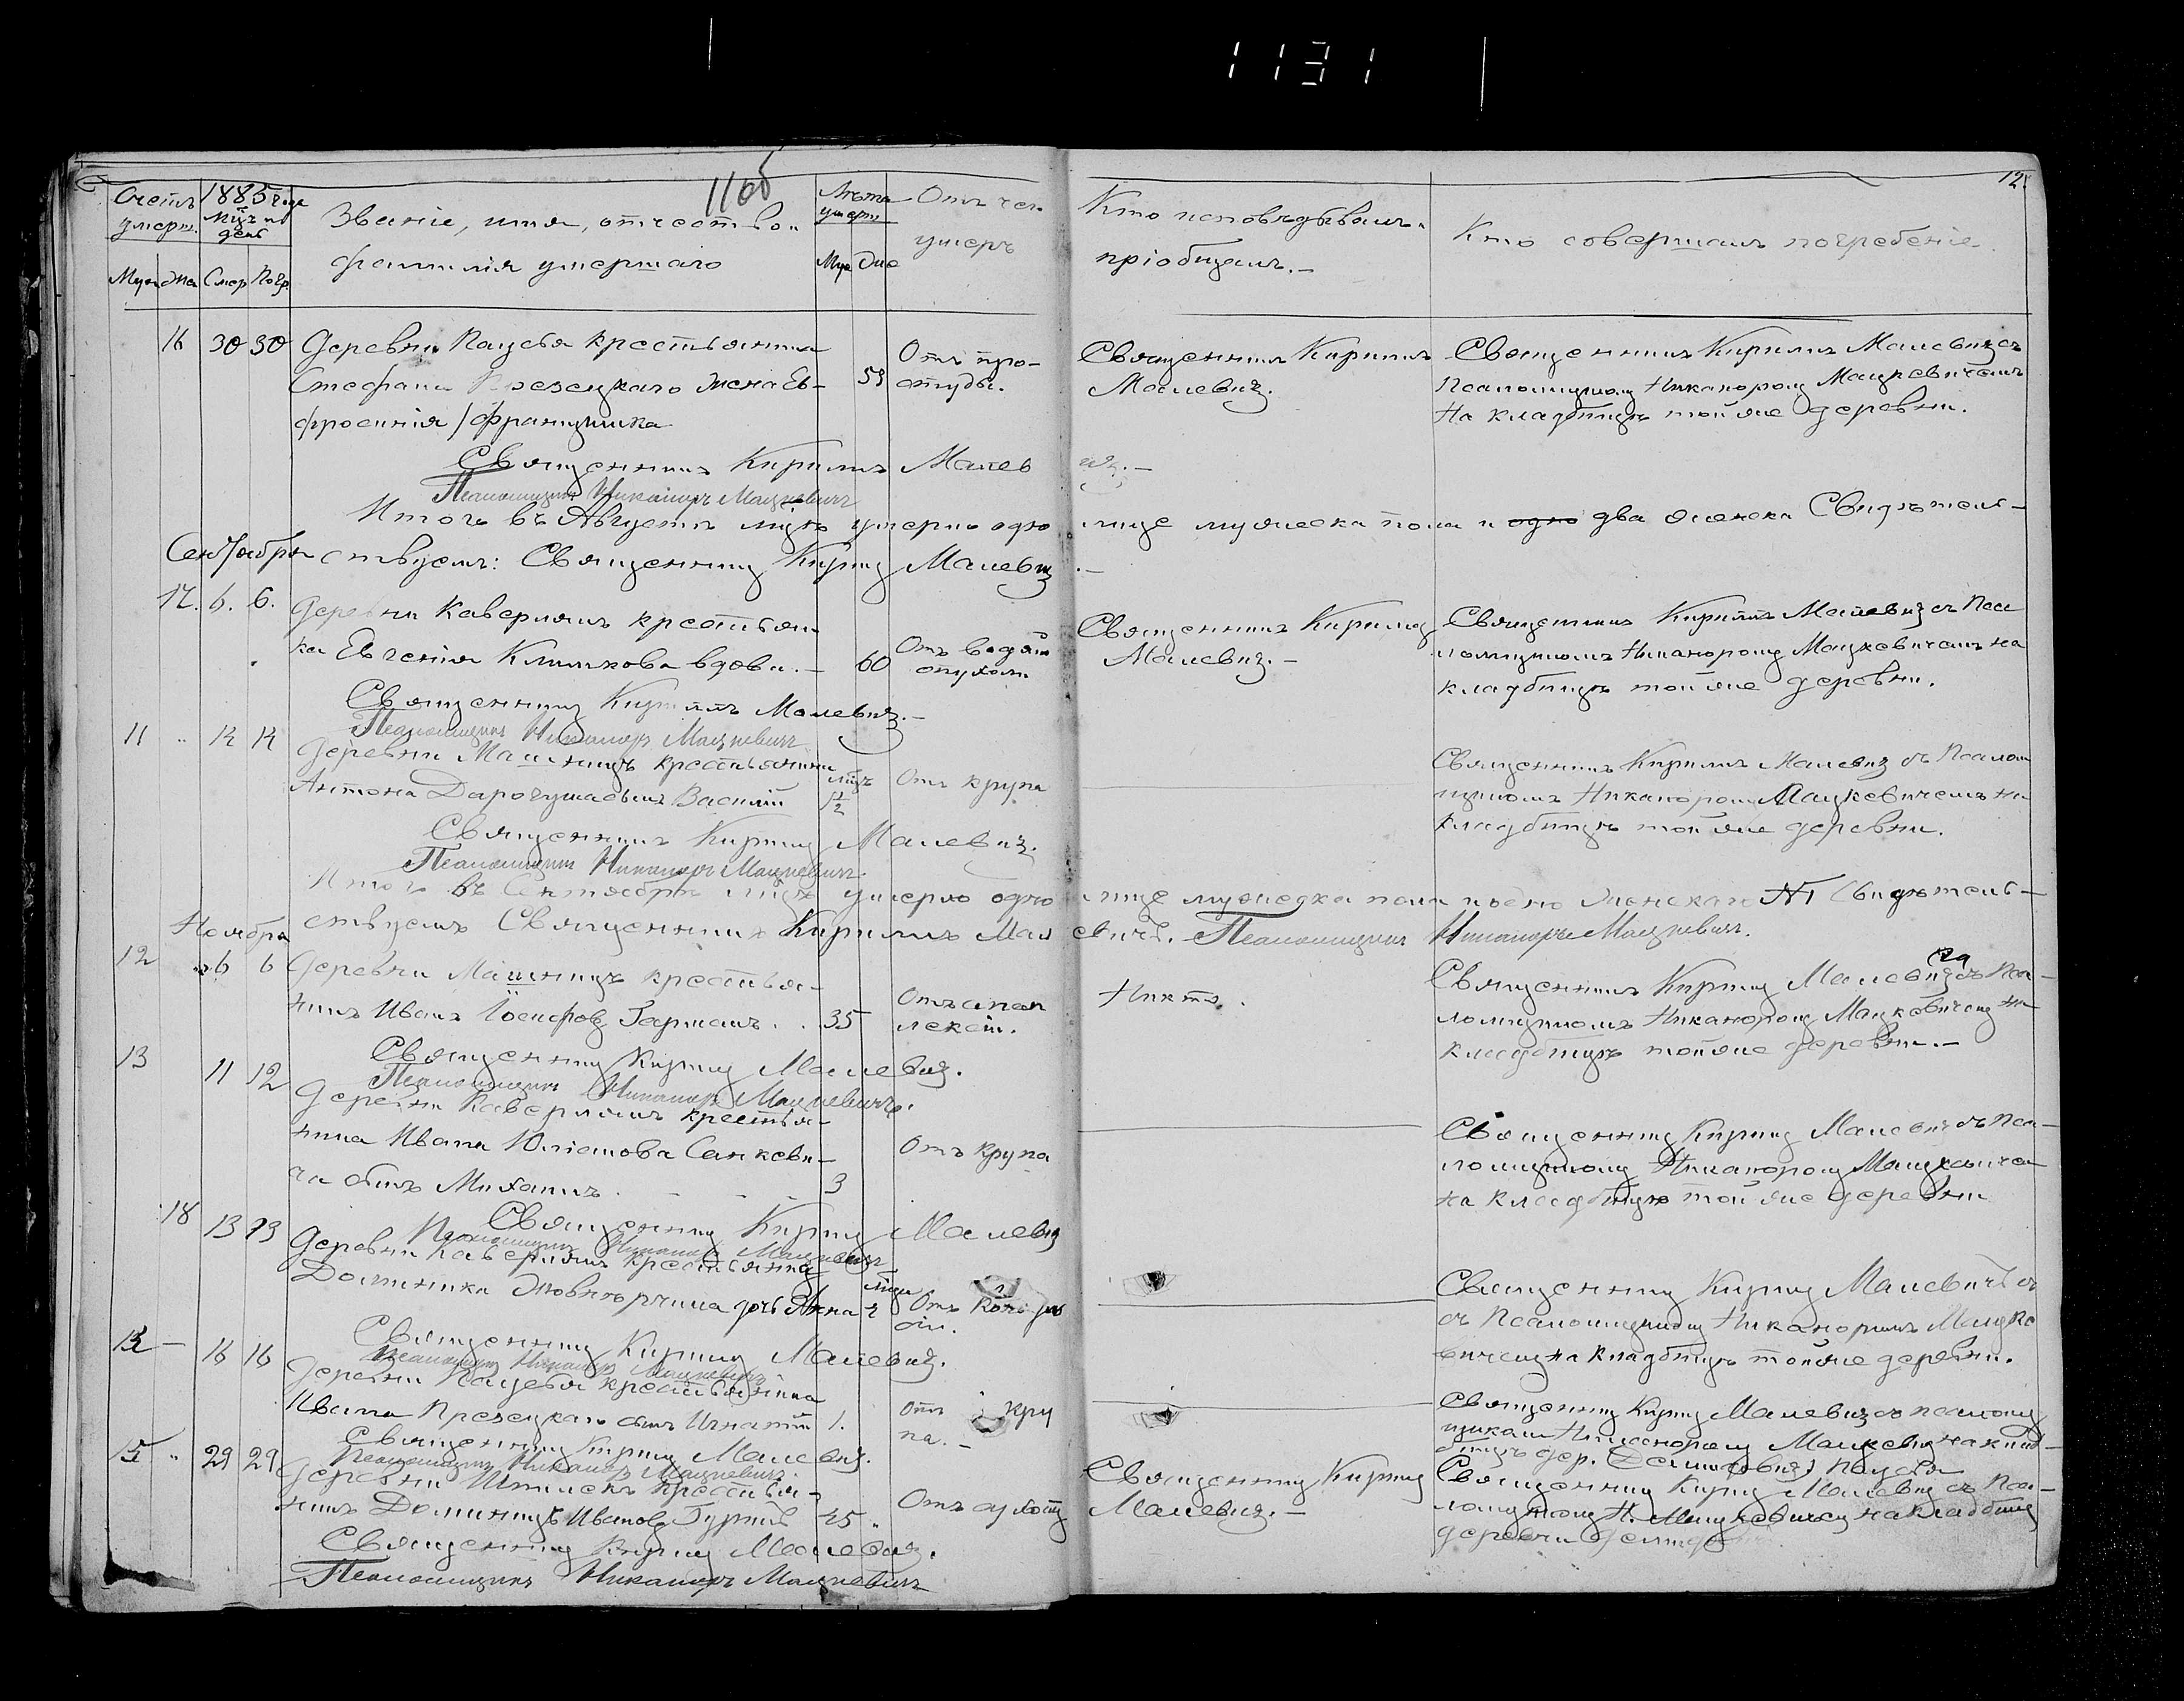 1131
12.
1106
Счетъ умерш.
1885 года
Мѣс. и день
Званіе, имя, отчество и
фамилія умершаго
Лѣта умерш
Отъ чего
умеръ
Кто исповѣдывалъ и
пріобщалъ.—
Кто совершалъ погребеніе.
Муж Жен Смер Погр.
Муж Жен
16 30 30 Деревни Паусья крестьянина
Стефана Презецкаго жена Ев-
фросинія /Францишка
Отъ про-
студы.
Священникъ Кириллъ
Малевич.
Священникъ Кириллъ Малевичъ съ
Псаломщикомъ Никаноромъ Мацкевичемъ
На кладбищѣ той же деревни.
Священникъ Кириллъ Малев ич.—
Псаломщикъ Никаноръ Мацкевичъ
Итого въ Августѣ мѣсяцѣ умерло одно лице мужеска пола и одно два женска Свидѣтель-
ствуемъ: Священникъ Кирилл Малевич.—
Сентября
17. 6. 6. Деревни Каверлякъ крестьян-
ка Евгенія Климкова вдова.— 60
Отъ водяной
опухоли
Священникъ Кирилл
Малевич.—
Священникъ Кириллъ Малевич съ Пса
ломщикомъ Никаноромъ Мацкевичемъ на
кладбищѣ той же деревни.
Священникъ Кириллъ Малевич.—
Псаломщикъ Никаноръ Мацкевичъ
11 " 14 14 Деревни Машницъ крестьянина
Антона сынъ Василій
мѣс. 1/2
Отъ крупа
Священникъ Кириллъ Малевич съ Псалом
щикомъ Никаноромъ Мацкевичемъ на
кладбищѣ той же деревни.
Священникъ Кирилл Малевич.
Псаломщикъ Никаноръ Мацкевичъ.
Итого въ Сентябрѣ мѣсяцѣ умерло одно лице мужеска пола и одно женскаго Свидѣтель-
ствуемъ Священникъ Кириллъ Мал евичъ.— Псаломщикъ Никаноръ Мацкевичъ.
Ноября
12 6 6 Деревни Машницъ крестья-
нинъ Иванъ Іосифовъ Гарманъ . . 35
Отъ апоп
лексіи.
Никто.
Священникъ Кирилл Малевич съ Пса-
ломщикомъ Никаноромъ Мацкевичемъ на
кладбищѣ той же деревни.—
Священникъ Кирилл Малевич.
Псаломщикъ Никаноръ Мацкевичъ.
13 11 12 Деревни Каверлякъ крестья-
нина Ивана Юліанова Санкеви-
ча сынъ Михаилъ . - - - 3
Отъ крупа
Священникъ Кирилл Малевич съ Пса-
ломщикомъ Никаноромъ Мацкевичем
на кладбищѣ той же деревни
Священникъ Кирилл Малевич
Псаломщикъ Никаноръ Мацкевичъ
18 13 13 Деревни Каверлякъ крестьянина
Доминика дочь Анна
Отъ
Священникъ Кирилл Малевичъ съ
съ Псаломщикомъ Никаноромъ Мацке
вичемъ на кладбищѣ той же деревни.
Священникъ Кирилл Малевич.
Псаломщикъ Никаноръ Мацкевичъ
16 16 Деревни Паусья крестьянина
Ивана Презецкаго сынъ Игнатій 1.
Отъ кру
па.—
Священникъ Кирилл Малевич съ псаломщ
щикам Никаноромъ Мацкевич на клад-
бищѣ дер. Паусья
Священникъ Кирилл Малевич.
Псаломщикъ Никаноръ Мацкевичъ.
15 " 29 29 Деревни крестья-
нинъ Доминикъ Ивановъ 25
Отъ сухоты
Священникъ Кирилл
Малевич.—
Священникъ Кирилл Малевич съ Пса-
ломщикомъ Н. Мацкевичем на кладбищ
деревни
Священникъ Кирилл Малевич.
Псаломщикъ Никаноръ Мацкевичъ